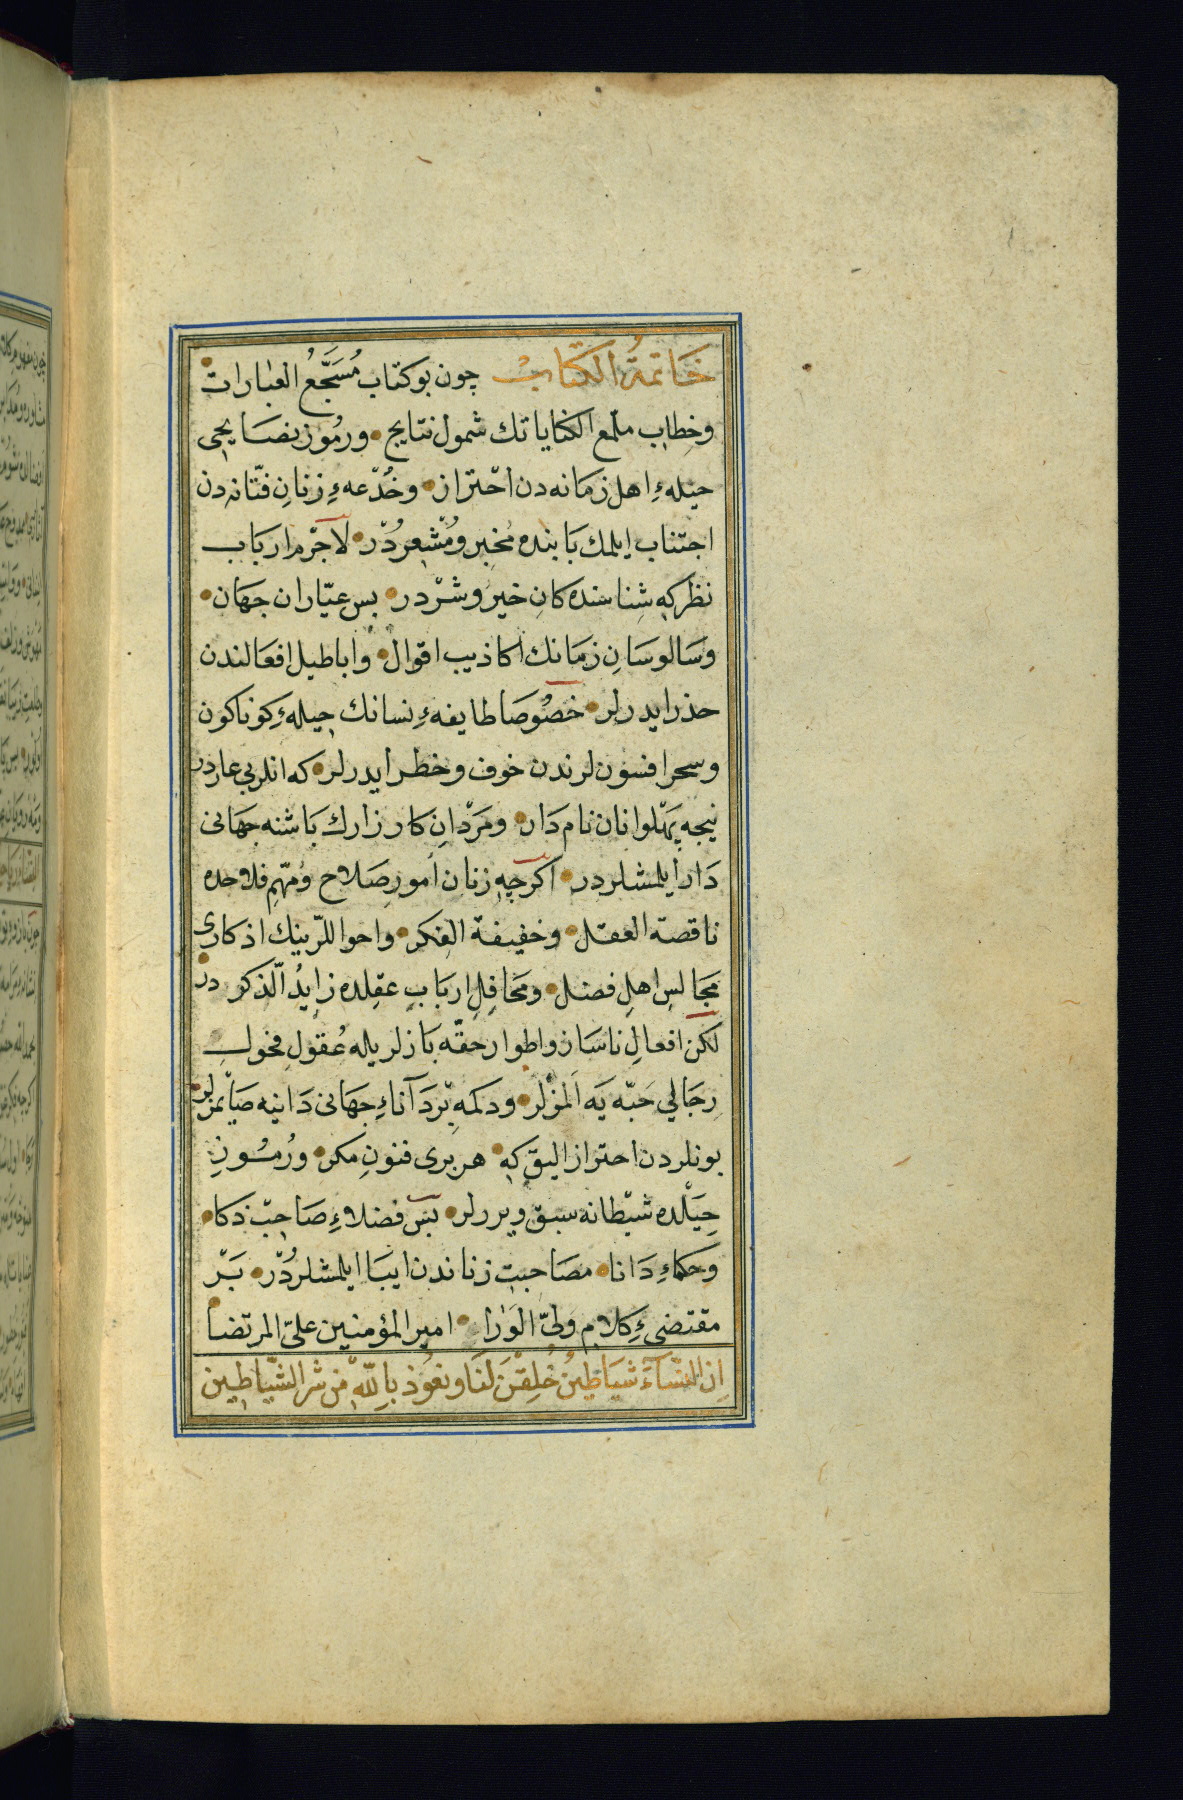 خَاتمَةُ الكتَابْ چون بو كتاب مُسَجَّعُ العبارات
وخِطاب ملمّع الكناياتك شمول نتايج ورمُوز نصَايحى
حيلهءِ اهل زمانه دن احْتراز وخُدْعهءِ زنانِ فتّانه دن
اجتناب ايلمك بابنده مخبِر ومُشْعِردُر لاجرْم ارباب
نظر كه شِناسنده كانِ خير وشرْدر بس عيّاران جهان
وسَالوسَانِ زمَانك اكاذيب اقوال واباطيل افعالندن
حذر ايدرلر خصُوصا طايفهءِ نسانك حيلهءِ كوناكون
وسحر افسون لرندن خوف وخطر ايدرلر كه انلر بى عاردر
نيجه پهْلوانان نامدَار ومَرْدانِ كارزارك باشنه جهانى
دَار ايلمشلردر اكرچه زنان امورِ صَلاح ومُهّمِ فلاحده
ناقصة العقل وخفيفة الفِكر واحوالّرينك اذكارى
مجَالسِ اهلِ فضل ومحَافِلِ اربابِ عقلده زايدُ الّذكر در
لكن افعالِ ناسَاز واطوار حقّه بازلريله عُقولِ فحولِ
رجَالى حَبّه يَه المزْلر ودكمه بِرْ دَآناءِ جهانى دَانيه صَايْمزلر
بونلردن احتراز اليقْ كه هر برى فنونِ مكر ورُمُسُونِ
حِيَلْده شيْطانه سبق ويررلر بس فضلاءِ صَاحِبْ ذكا
وَحكماءِ دَانا مصَاحبتِ زناندن ايبَا ايلمشلردُرْ بَرْ
مقتضىءِ كلامِ ولىّ الوَرا امير المؤمنين علىّ المرتضا
اِنَ النّسَآءَ شيَاطِينُ خُلِقْنَ لنَا ونعُوذ بِاللّهِ مِن شرِ الشّيَاطِين